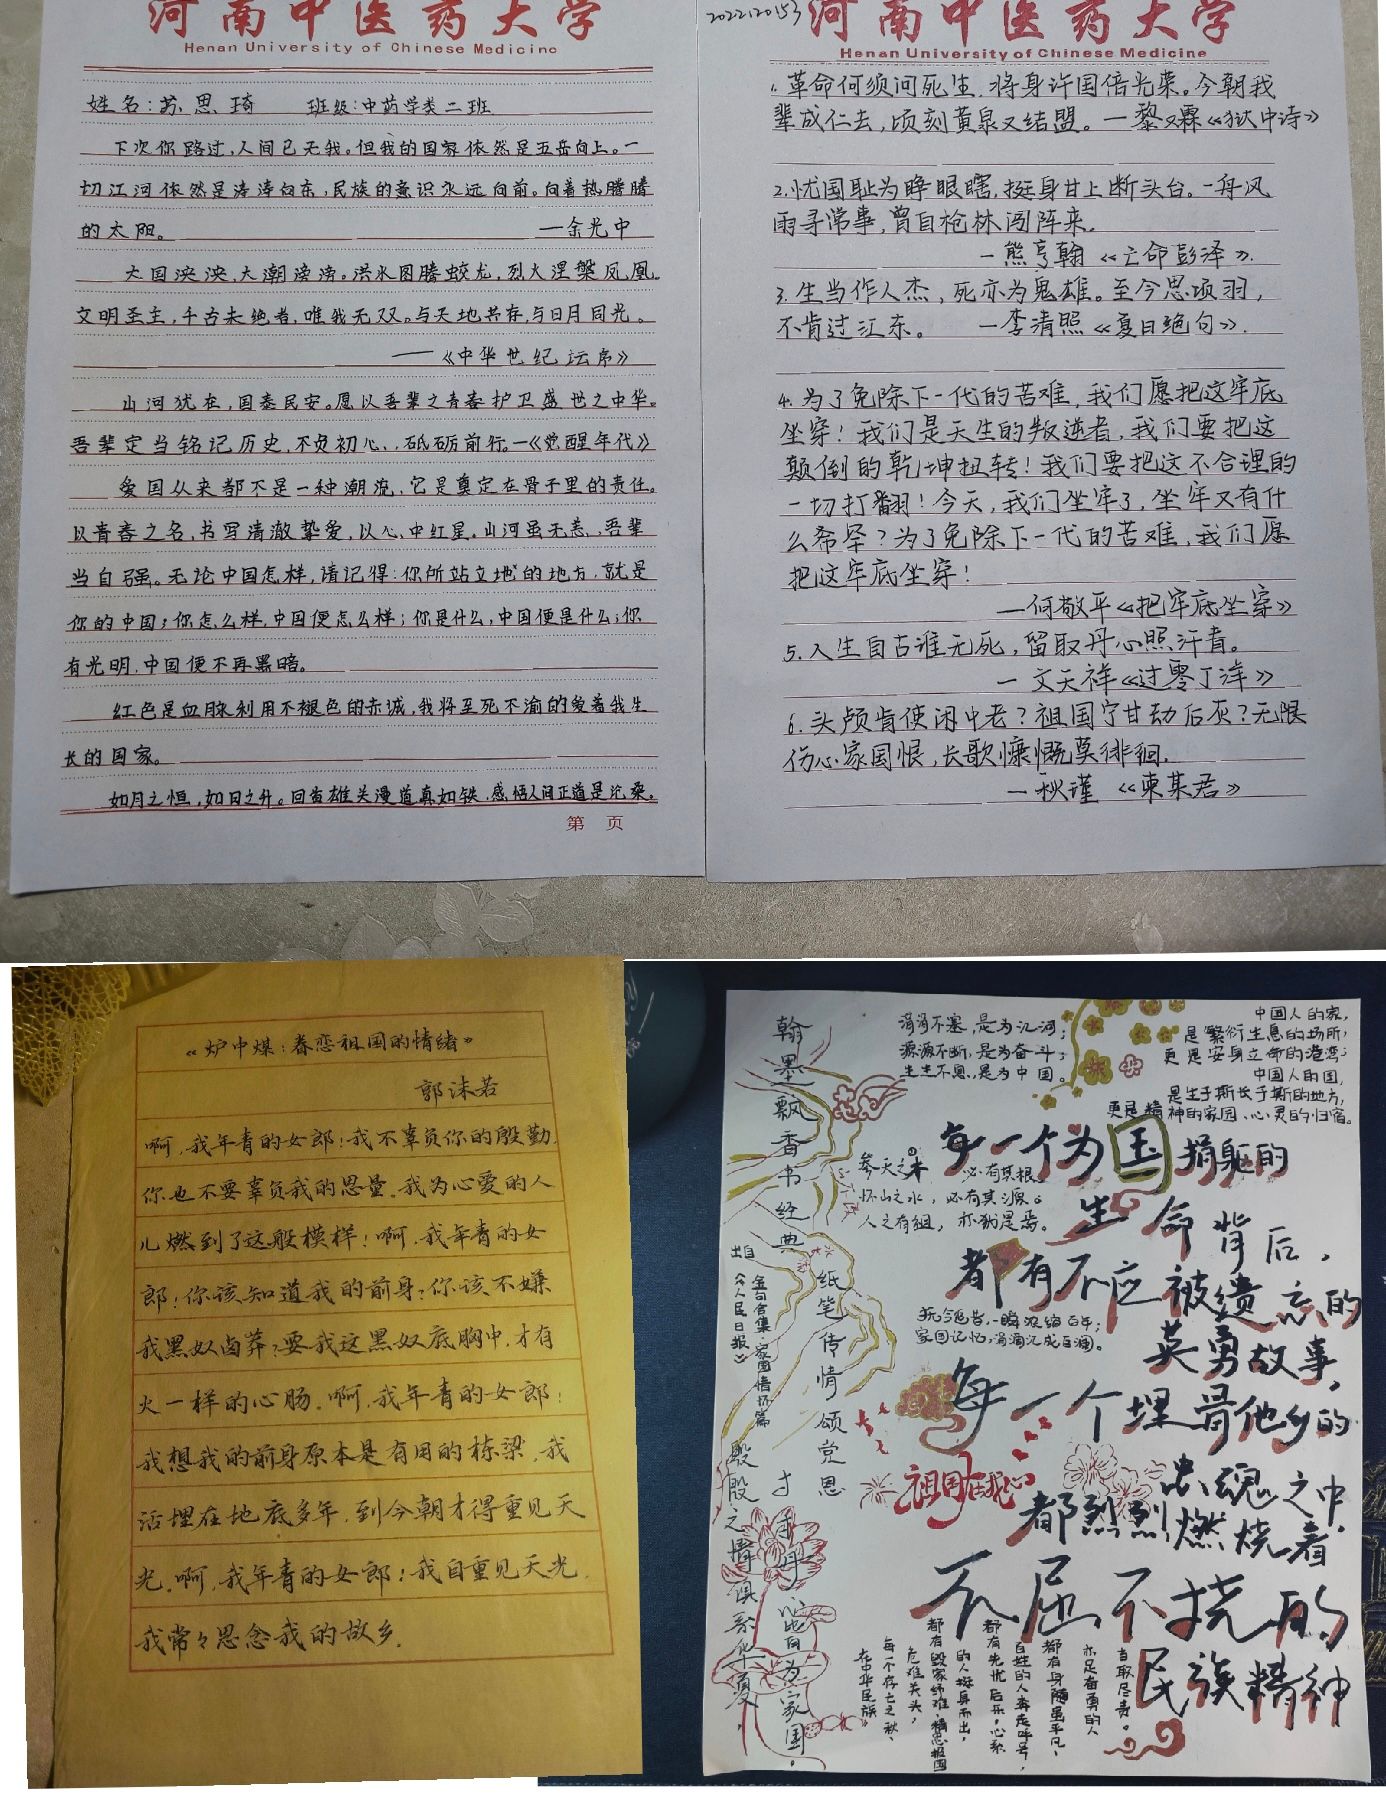 河南中医药大学
Henan University of Chinese Medicine
姓名：苏思琦 班级：中药学类二班
下次你路过，人间已无我。但我的国家依然是五岳向上。一
切江河依然是涛涛向东，民族的意识永远向前。向着热腾腾
的太阳。 —余光中
大国泱泱，大潮滂滂。洪水图腾蛟龙，烈火涅槃凤凰。
文明圣主，千古未绝者，唯我无双。与天地共存，与日月同光。
——《中华世纪坛序》
山河犹在，国泰民安。愿以吾辈之青春护卫盛世之中华。
吾辈定当铭记历史，不负初心，砥砺前行。—《觉醒年代》
爱国从来都不是一种潮流，它是奠定在骨子里的责任。
以青春之名，书写清澈挚爱，以心中红星。山河虽无恙，吾辈
当自强。无论中国怎样，请记得：你所站立地的地方，就是
你的中国；你怎么样，中国便怎么样；你是什么，中国便是什么；你
有光明，中国便不再黑暗。
红色是血脉，利用不褪色的赤诚，我将至死不渝的爱着我生
长的国家。
如月之恒，如日之升。回首雄关漫道真如铁，感悟人间正道是沧桑。
第 页
2022120153
河南中医药大学
Henan University of Chinese Medicine
1. 革命何须问死生，将身许国倍光荣。今朝我
辈成仁去，顷刻黄泉又结盟。—黎又霖《狱中诗》
2. 忧国耻为睁眼瞎，挺身甘上断头台。一舟风
雨寻常事，曾自枪林闯阵来。
—熊亨翰《亡命彭泽》.
3. 生当作人杰，死亦为鬼雄。至今思项羽，
不肯过江东。 —李清照《夏日绝句》.
4. 为了免除下一代的苦难，我们愿把这牢底
坐穿！我们是天生的叛逆者，我们要把这
颠倒的乾坤扭转！我们要把这不合理的
一切打翻！今天，我们坐牢了，坐牢又有什
么希罕？为了免除下一代的苦难，我们愿
把这牢底坐穿！
—何敬平《把牢底坐穿》
5. 人生自古谁无死，留取丹心照汗青。
—文天祥《过零丁洋》
6. 头颅肯使闲中老？祖国宁甘劫后灰？无限
伤心家国恨，长歌慷慨莫徘徊.
—秋瑾《柬某君》
《炉中煤：眷恋祖国的情绪》
郭沫若
啊，我年青的女郎！我不辜负你的殷勤，
你也不要辜负我的思量。我为心爱的人
儿燃到了这般模样！啊，我年青的女
郎！你该知道我的前身？你该不嫌
我黑奴卤莽？要我这黑奴底胸中，才有
火一样的心肠。啊，我年青的女郎！
我想我的前身原本是有用的栋梁，我
活埋在地底多年，到今朝才得重见天
光。啊，我年青的女郎！我自重见天光，
我常々思念我的故乡。
翰墨飘香书经典
纸笔传情颂党恩
寸寸丹心皆为家国，
殷殷之情俱系华夏，
出自
《人民日报》
金句合集·家国情怀篇
涓涓不塞，是为江河；
源源不断，是为奋斗；
生生不息，是为中国。
中国人的家，
是繁衍生息的场所，
更是安身立命的港湾；
中国人的国，
是生于斯长于斯的地方，
更是精神的家园、心灵的归宿。
参天之木，必有其根。
怀山之水，必有其源。
人之有祖，亦犹是焉。
抚今追昔，一瞬浓缩百年；
家国记忆，涓滴汇成百澜。
每一个为国捐躯的
生命背后，
都有不应被遗忘的
英勇故事，
每一个埋骨他乡的
忠魂之中，
都烈烈燃烧着
不屈不挠的
民族精神
祖国在我心
在中华民族
每一个存亡之秋、
危难关头，
都有毁家纾难、精忠报国
的人挺身而出，
都有先忧后乐、心系
百姓的人奔走呼号，
都有身虽平凡、
亦足奋勇的人
自取尽责。